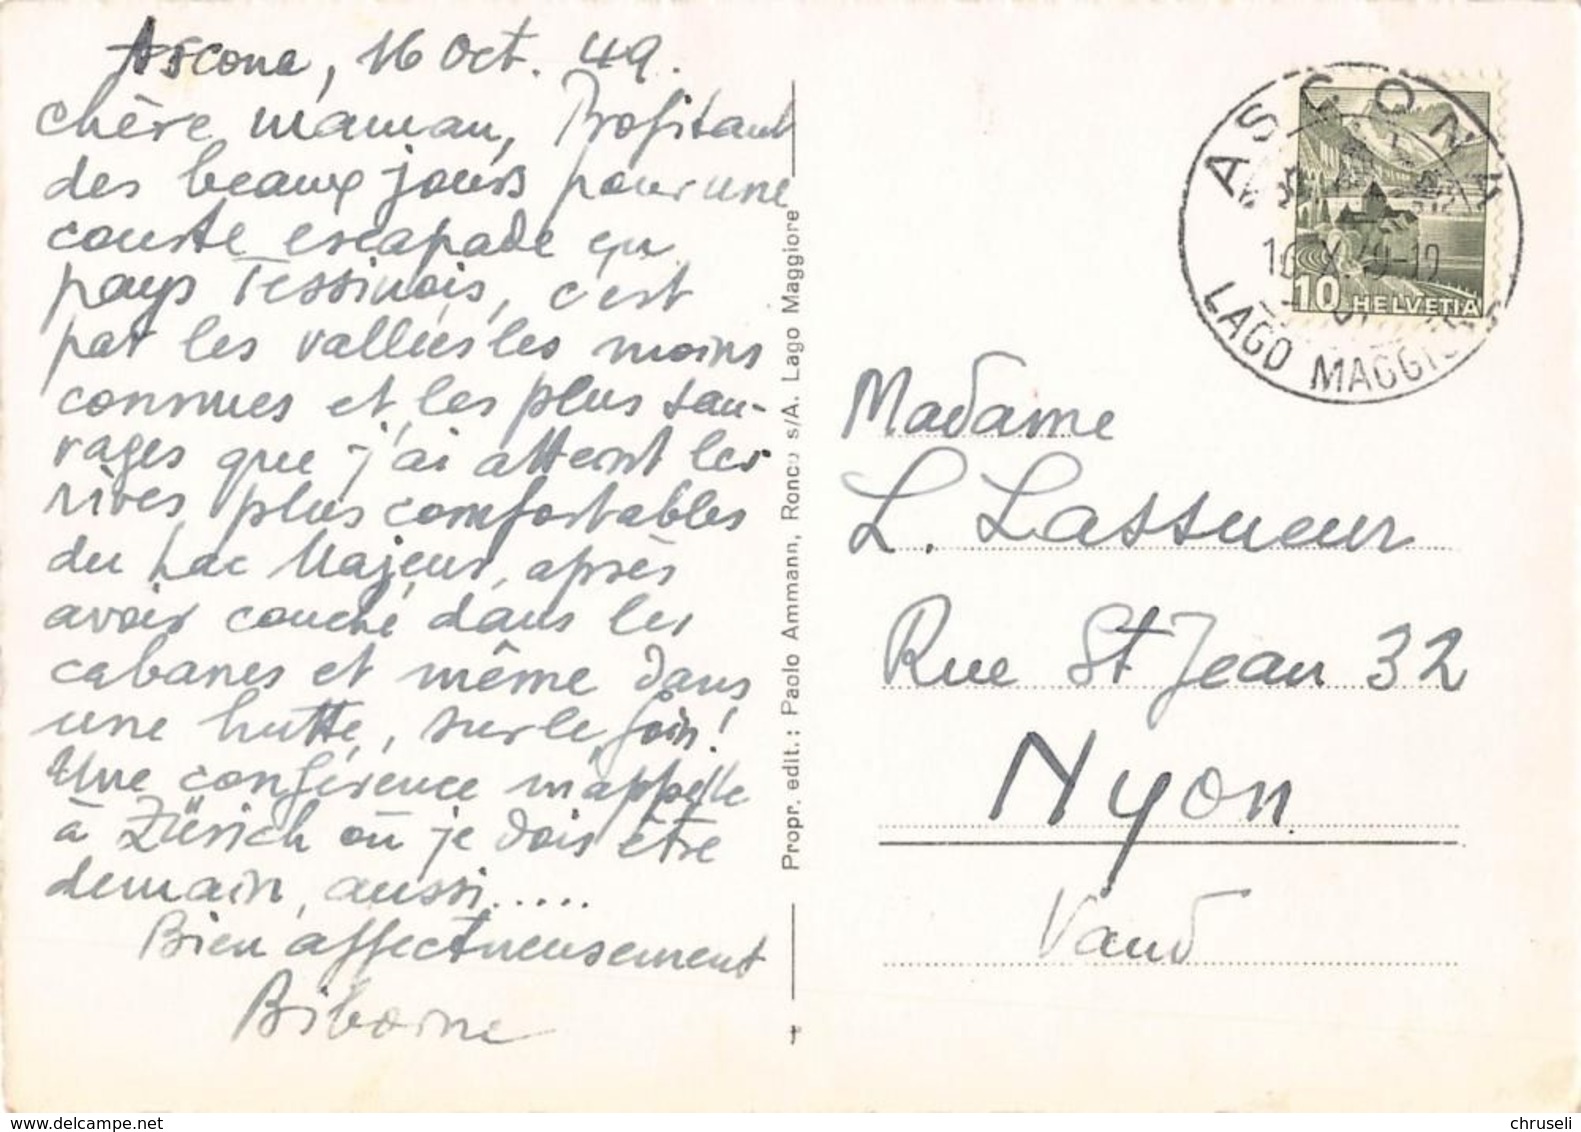 Ascona, 16 Oct. 49.
chère maman, Profitant
des beaux jours pour une
courte escapade en
pays Tessinois, c'est
par les vallées les moins
connues et les plus sau-
vages que j'ai atteint les
rives plus comfortables
du Lac Majeur, après
avoir couché dans les
cabanes et même dans
une hutte, sur le foin!
Une conférence m'appelle
à Zürich où je dois être
demain, aussi.....
Bien affectueusement
Propr. edit.: Paolo Ammann, Ronco s/A. Lago Maggiore
ASCONA
16.X.49-12
LAGO MAGGIORE
10 HELVETIA
Madame
L. Lassueur
Rue St Jean 32
Nyon
Vaud
delcampe.net
chruseli